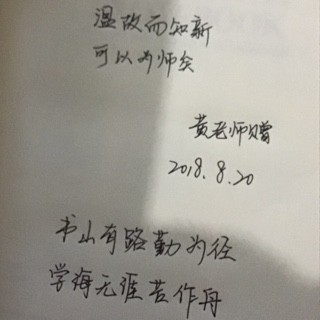 温故而知新
可以为师矣
黄老师赠
2018.8.20
书山有路勤为径
学海无涯苦作舟